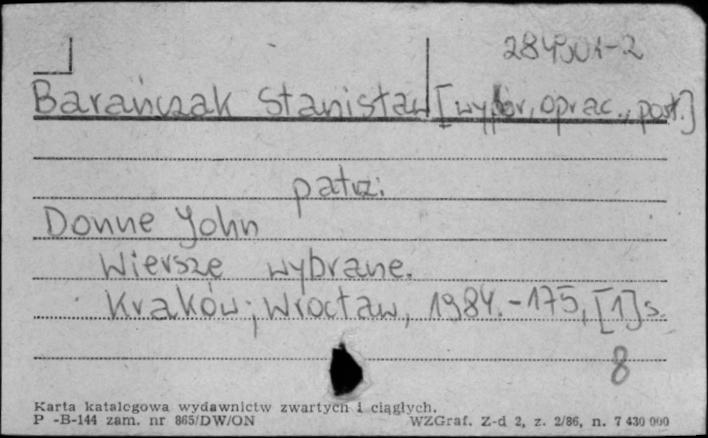 284501-2
Barańczak Stanisław [wybór, oprac., posł.]
patrz:
Donne John
Wiersze wybrane.
Kraków; Wrocław, 1984. - 175, [1] s.
8
Karta katalogowa wydawnictw zwartych i ciągłych.
P -B-144 zam. nr 865/DW/ON WZGraf. Z-d 2, z. 2/86, n. 7 430 000